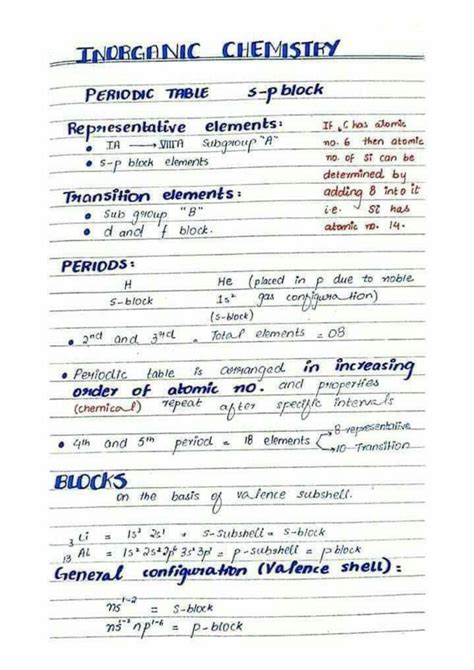 INORGANIC CHEMISTRY
PERIODIC TABLE s-p block
Representative elements:
• IA → VIIIA Subgroup "A"
• s-p block elements
If C has atomic
no. 6 then atomic
no. of Si can be
determined by
adding 8 into it
i.e. Si has
atomic no. 14.
Transition elements:
• Sub group "B"
• d and f block.
PERIODS:
H He (placed in p due to noble
s-block 1s² gas configuration)
(s-block)
• 2nd and 3rd = Total elements = 08
• Periodic table is arranged in increasing
order of atomic no. and properties
(chemical) repeat after specific intervals
• 4th and 5th period = 18 elements → 8 representative
→ 10 Transition
BLOCKS
on the basis of valence subshell.
₃Li = 1s² 2s¹ = s-subshell = s-block
₁₃Al = 1s² 2s² 2p⁶ 3s² 3p¹ = p-subshell = p block
General configuration (Valence shell):
ns¹⁻² = s-block
ns¹⁻² np¹⁻⁶ = p-block